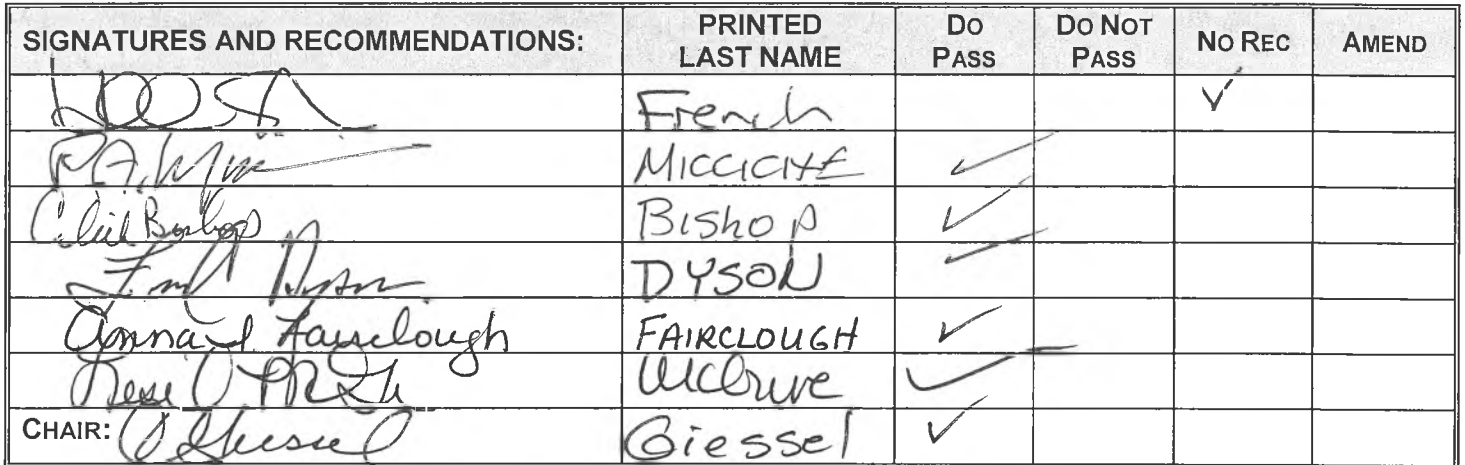 SIGNATURES AND RECOMMENDATIONS: PRINTED LAST NAME DO PASS DO NOT PASS NO REC AMEND
French ✓
MICCICHE ✓
Bishop ✓
DYSON ✓
Anna Fairclough FAIRCLOUGH ✓
McGuire ✓
CHAIR: C Giessel Giessel ✓